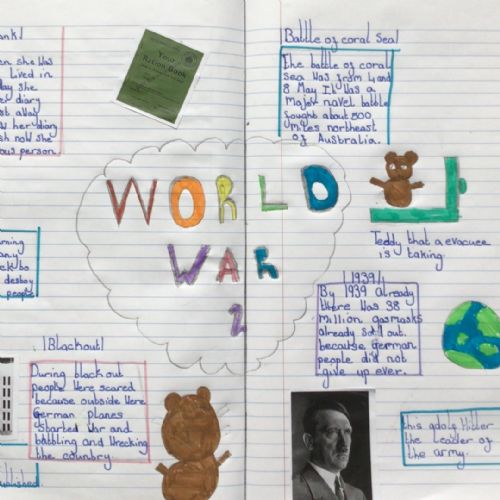 ank!
n she was
lived in
ay she
er diary
st away
w her diary
sh now she
ous person.
Your
Ration Book
Battle of coral sea!
The battle of coral
sea was from 4 and
8 May. It was a
Major navel battle
fought about 500
miles northeast
of Australia.
WORLD
WAR
2
Teddy that a evacuee
is taking.
1939!
By 1939 already
there was 38
million gasmasks
already sort out.
because german
people did not
give up ever.
this adolf Hitler
the leader of
the army.
rning
any
ck to
destroy
people
Blackout!
During black out
people were scared
because outside were
German planes
started war and
and wrecking
the country.
ublished.